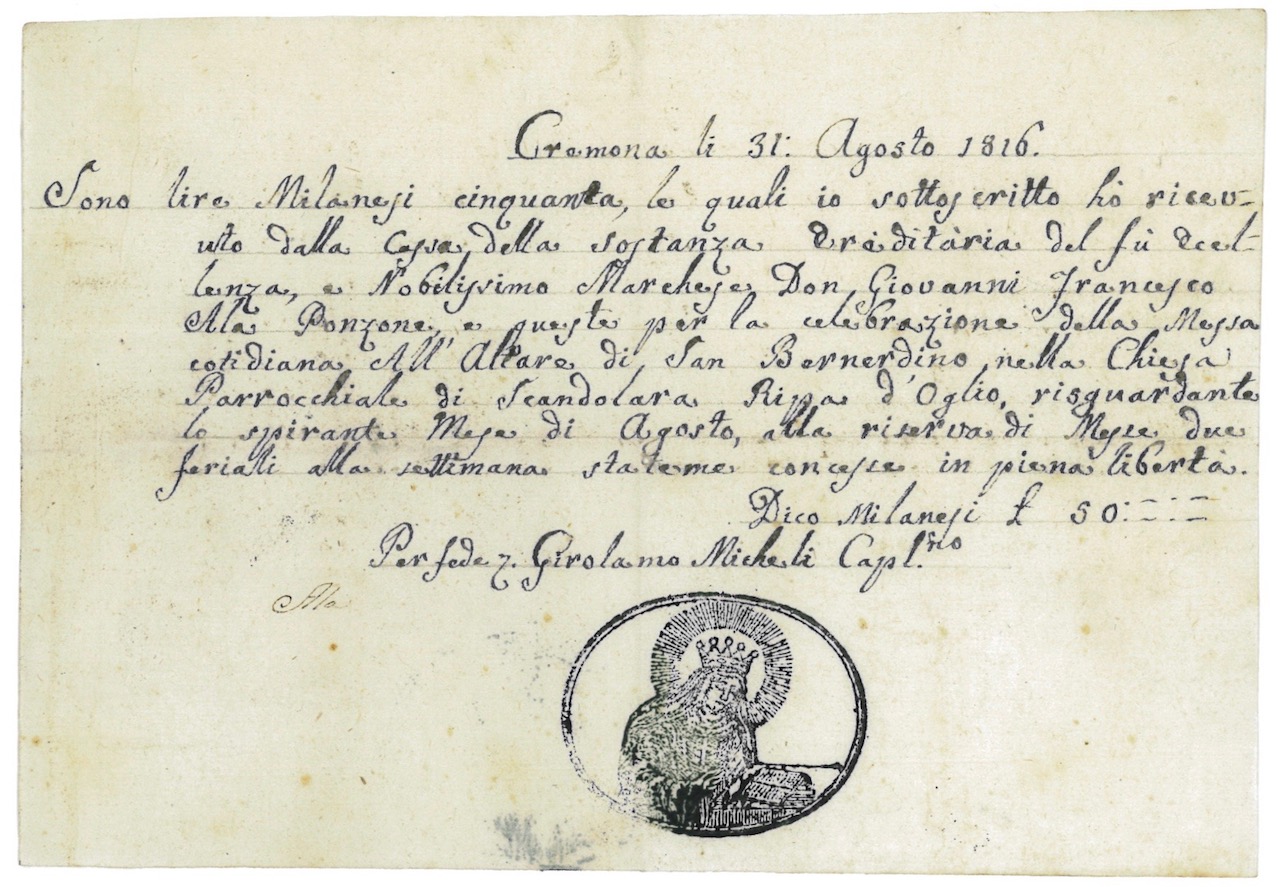 Cremona li 31: Agosto 1816.
Sono lire Milanesi cinquanta, le quali io sottoscritto hò ricev=
uto dalla Cassa, della sostanza Ereditària del fù Ecel=
lenza, e Nobilissimo Marchese Don Giovanni Francesco
Ala Ponzone, e queste per la celebrazione della Messa
cotidiana All' Altare di San Bernerdino nella Chiesa
Parrocchiale di Scandolara Ripa d'Oglio, risguardante
lo spirante Mese di Agosto, alla riserva di Messe due
feriali alla settimana stateme concesse in piena libertà.
Dico Milanesi £ 50:=:=
Per fede Girolamo Micheli Capl.no
Ala